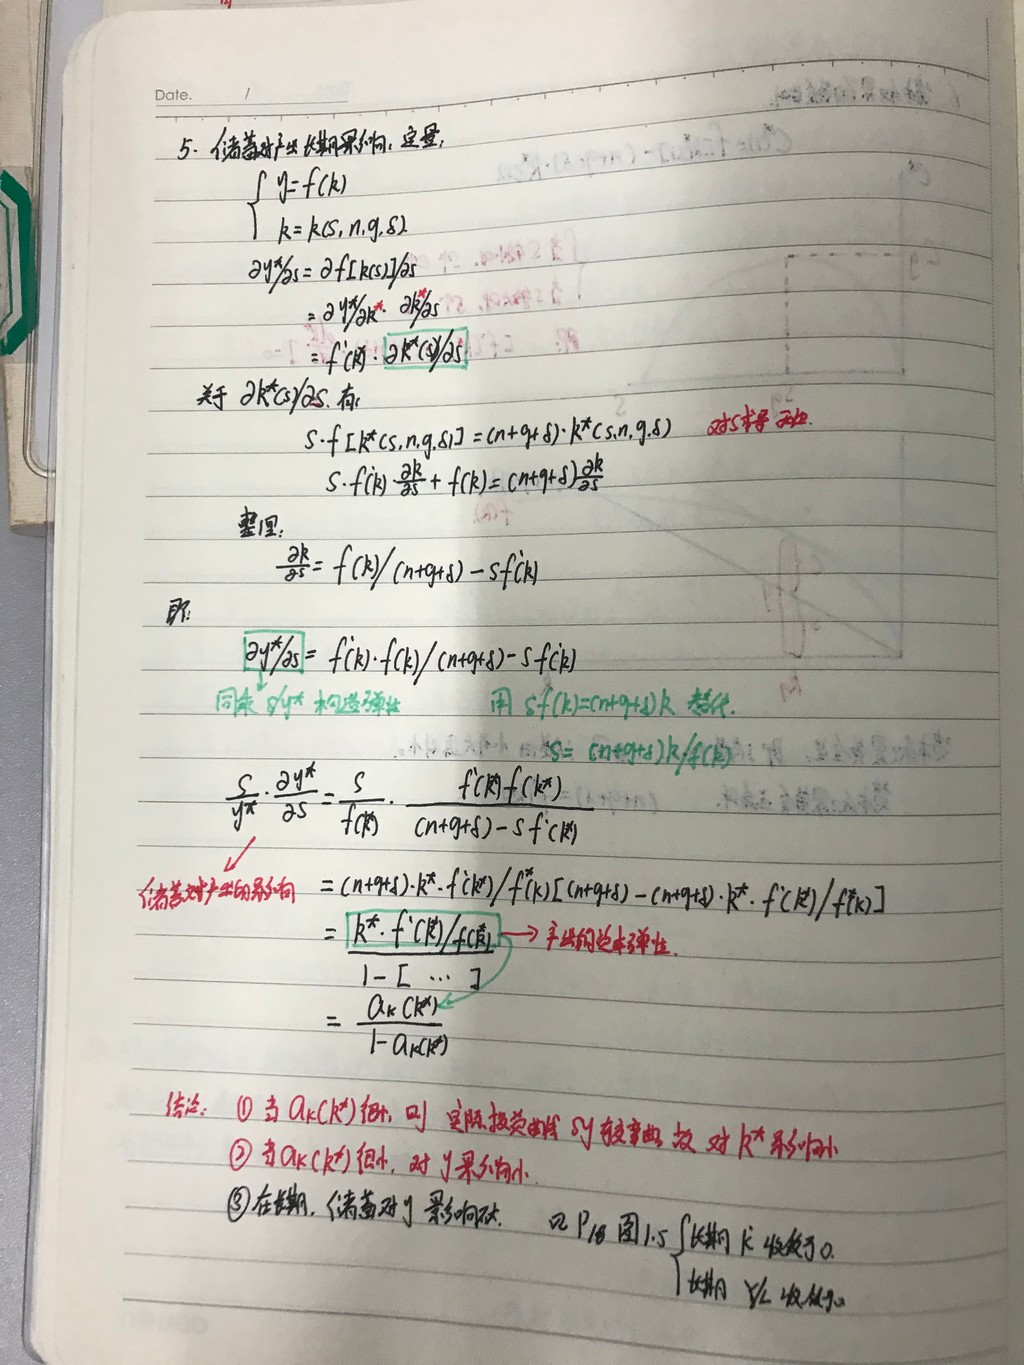 Date. /
5. 储蓄对产出长期影响: 定量;
{ y=f(k)
k=k(s,n,g,δ)
∂y*/∂s = ∂f[k(s)]/∂s
= ∂y*/∂k* · ∂k*/∂s
= f'(k*) · ∂k*(s)/∂s
关于 ∂k*(s)/∂s. 有:
s·f[k*(s,n,g,δ)] = (n+g+δ)·k*(s,n,g,δ) 对s求导
s·f'(k)·∂k/∂s + f(k) = (n+g+δ)∂k/∂s
整理:
∂k/∂s = f(k)/(n+g+δ) - sf'(k)
即:
∂y*/∂s = f'(k)·f(k)/(n+g+δ) - sf'(k)
同乘 s/y* 构造弹性 用 sf(k)=(n+g+δ)k 替代.
s= (n+g+δ)k/f(k)
s/y* · ∂y*/∂s = s/f(k*) · f'(k*)f(k*)/(n+g+δ) - sf'(k*)
储蓄对产出的影响 = (n+g+δ)·k*·f'(k*)/f(k*)[(n+g+δ) - (n+g+δ)·k*·f'(k*)/f(k*)]
= k*·f'(k*)/f(k*) → 产出的资本弹性.
1-[ … ]
= aK(k*)
1-aK(k*)
结论: ① 当 aK(k*) 很小, 则 实际投资曲线 sy 较弯曲 故 对 k* 影响小
② 当aK(k*) 很小, 对 y 影响小.
③ 在长期, 储蓄对y 影响不大. 见 P18 图1.5 { 长期 k̇ 收敛于0.
长期 Y/L 收敛于0